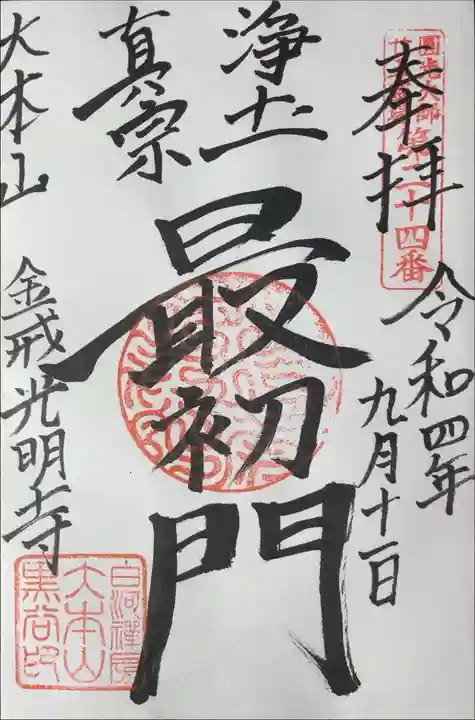 奉拝
圓光大師
第二十四番
令和四年
九月十一日
浄土
真宗
最初門
大本山
金戒光明寺
白河禅房
大本山
黒谷印